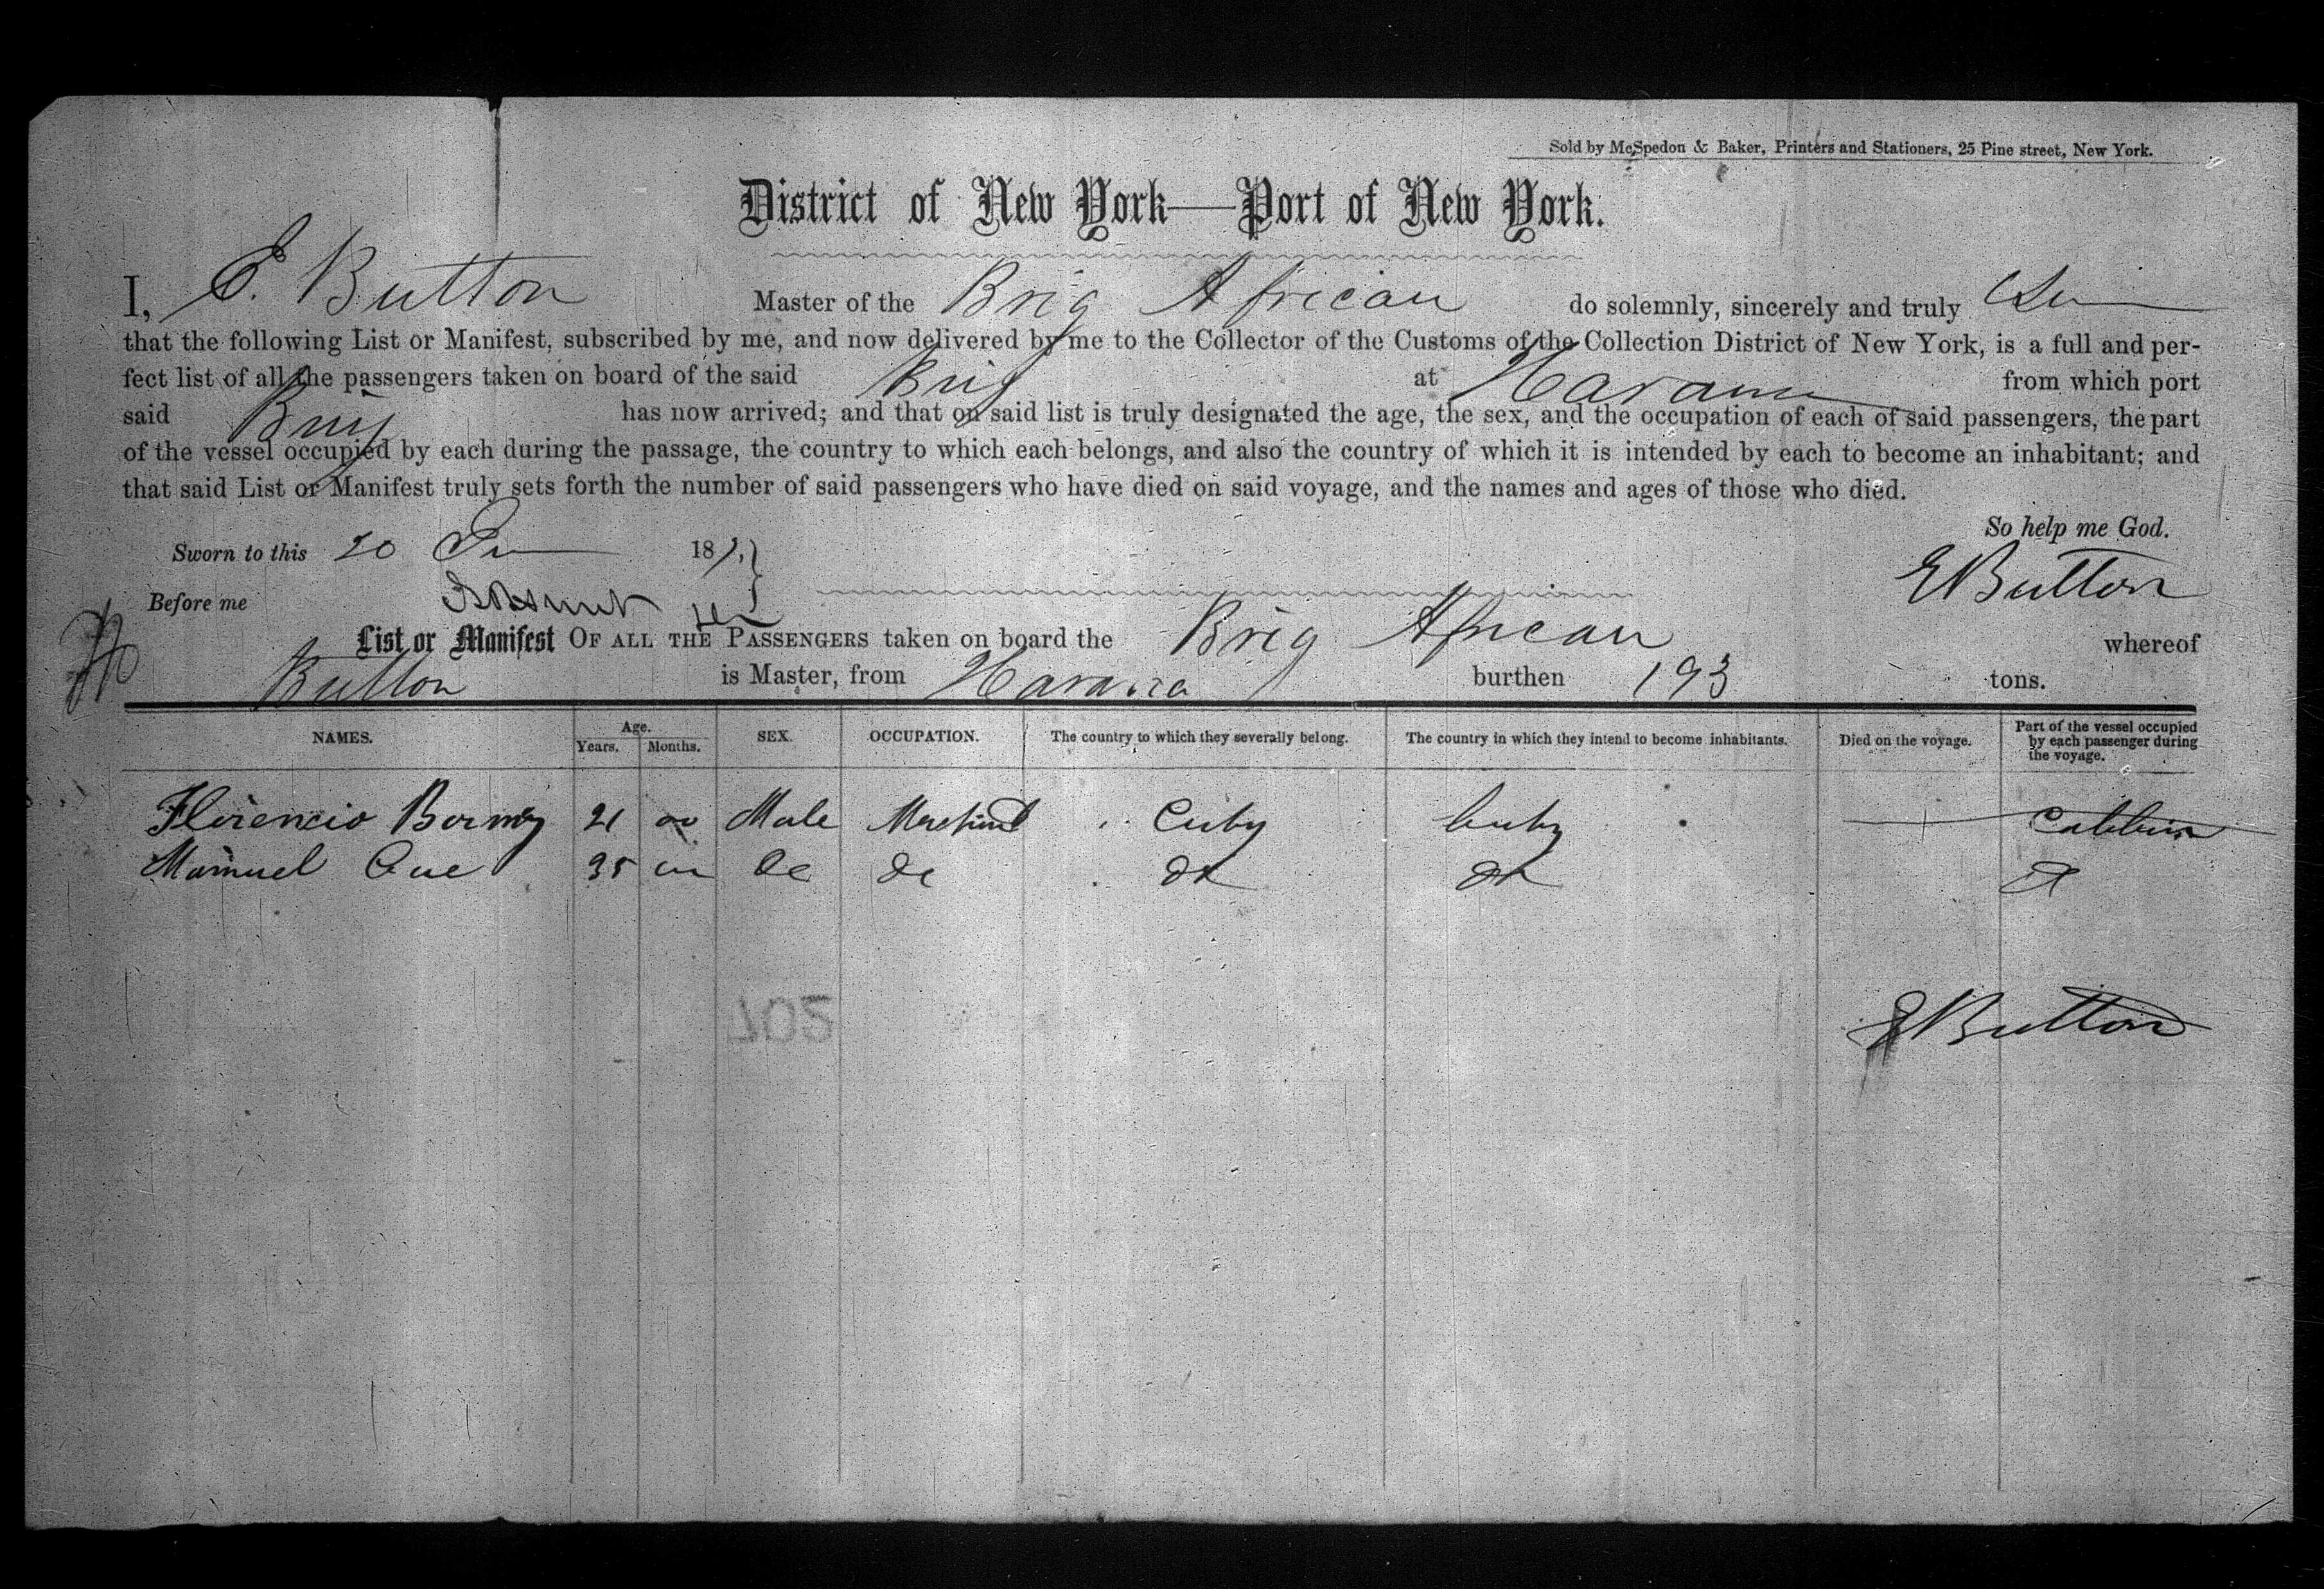 Sold by McSpedon & Baker, Printers and Stationers, 25 Pine street, New York.
District of New York—Port of New York.
I, E. Button Master of the Brig African do solemnly, sincerely and truly
that the following List or Manifest, subscribed by me, and now delivered by me to the Collector of the Customs of the Collection District of New York, is a full and per-
fect list of all the passengers taken on board of the said Brig at Havana from which port
said Brig has now arrived; and that on said list is truly designated the age, the sex, and the occupation of each of said passengers, the part
of the vessel occupied by each during the passage, the country to which each belongs, and also the country of which it is intended by each to become an inhabitant; and
that said List or Manifest truly sets forth the number of said passengers who have died on said voyage, and the names and ages of those who died.
So help me God.
Sworn to this 20 18
E Button
Before me
List or Manifest OF ALL THE PASSENGERS taken on board the Brig African whereof
Button is Master, from Havana burthen 193 tons.
NAMES. Age. Years. Months. SEX. OCCUPATION. The country to which they severally belong. The country in which they intend to become inhabitants. Died on the voyage. Part of the vessel occupied by each passenger during the voyage.
Florencio 21 Male Cuby Cuby
Manuel Que 35 do do do do
E Button